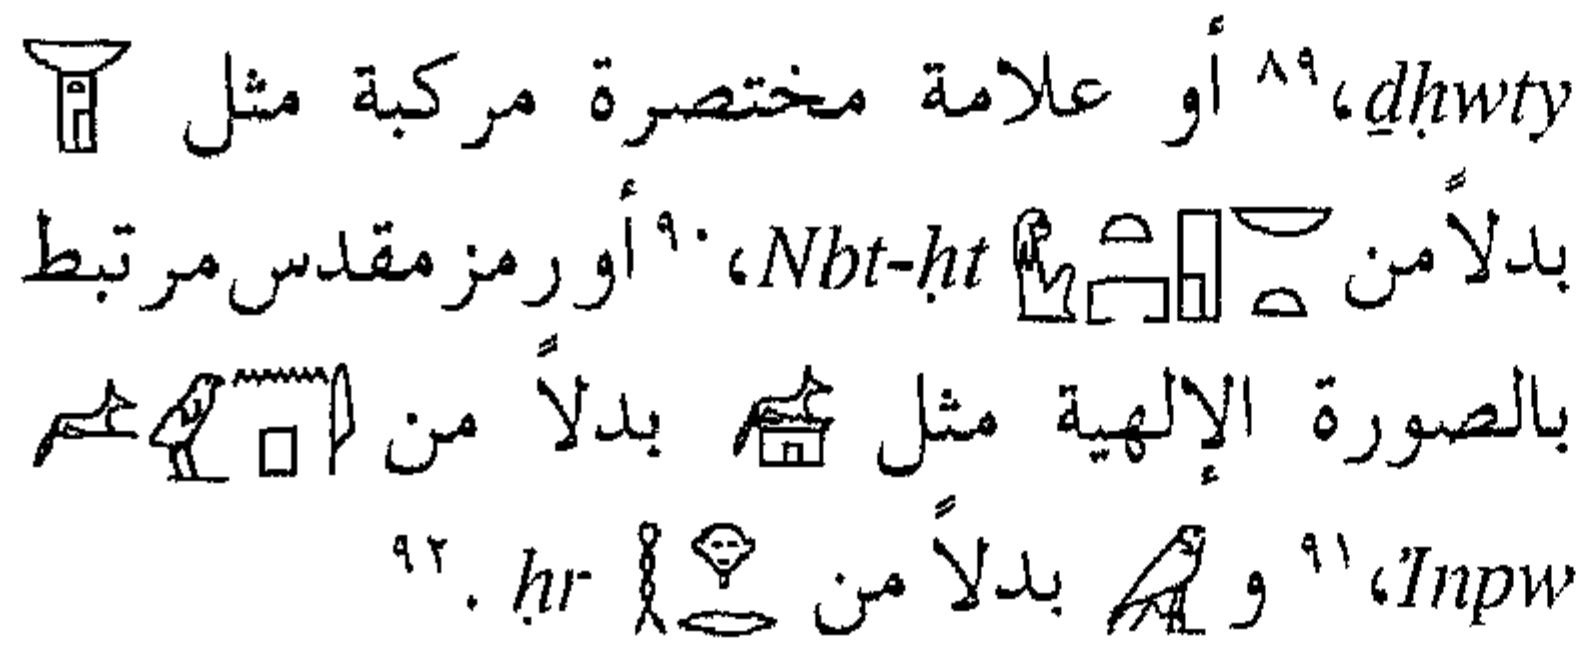 ḏḥwty،٨٩ أو علامة مختصرة مركبة مثل 𓉠
بدلاً من 𓎟𓏏𓉗𓏏𓉐𓁐 Nbt-ḥt،٩٠ أو رمز مقدس مرتبط
بالصورة الإلهية مثل 𓃣 بدلاً من 𓇋𓈖𓊪𓅱𓃢
Inpw،٩١ و 𓅃 بدلاً من 𓎛𓁷𓂋 ḥr .٩٢